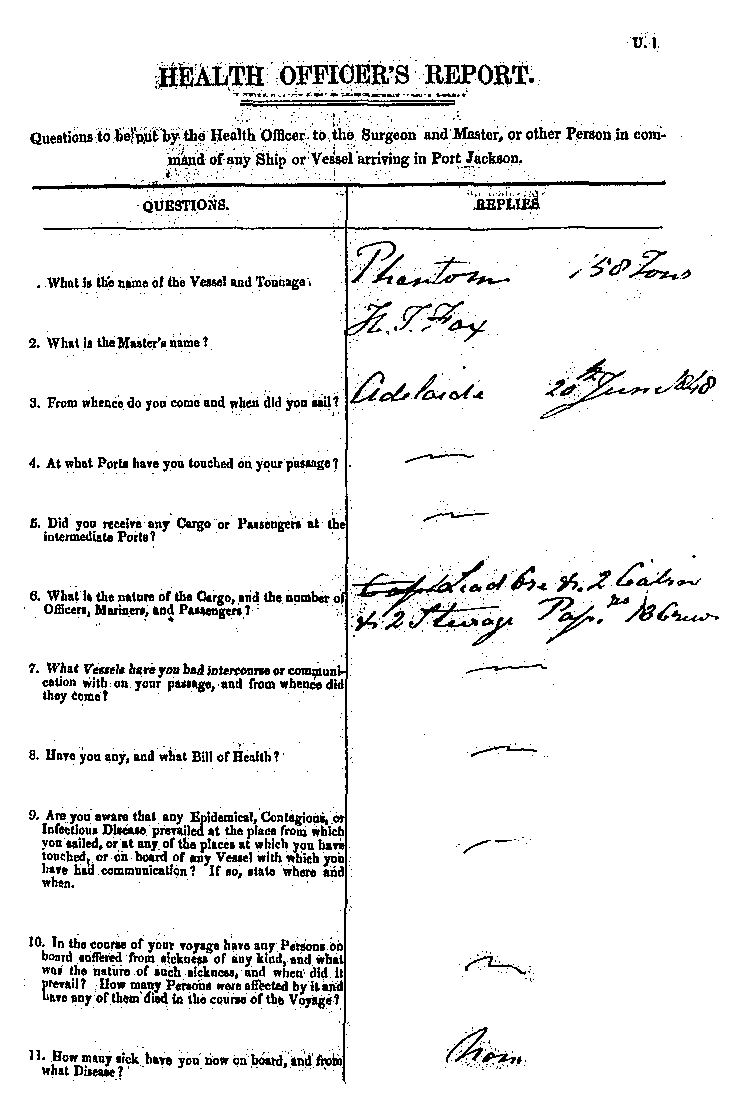 U. 1.
HEALTH OFFICER'S REPORT.
Questions to be put by the Health Officer to the Surgeon and Master, or other Person in com-
mand of any Ship or Vessel arriving in Port Jackson.
QUESTIONS. REPLIES
. What is the name of the Vessel and Tonnage. Phantom 158 Tons
2. What is the Master's name? H. T. Fox
3. From whence do you come and when did you sail? Adelaide 20th June 1848
4. At what Ports have you touched on your passage? —
5. Did you receive any Cargo or Passengers at the —
intermediate Ports?
6. What is the nature of the Cargo, and the number of Lead Ore & 2 Cabin
Officers, Mariners, and Passengers? & 2 Sturage Pass.rs Crew
7. What Vessels have you had intercourse or communi- —
cation with on your passage, and from whence did
they come?
8. Have you any, and what Bill of Health? —
9. Are you aware that any Epidemical, Contagious, or
Infectious Disease prevailed at the place from which
you sailed, or at any of the places at which you have
touched, or on board of any Vessel with which you —
have had communication? If so, state where and
when.
10. In the course of your voyage have any Persons on
board suffered from sickness of any kind, and what
was the nature of such sickness, and when did it —
prevail? How many Persons were affected by it and
have any of them died in the course of the Voyage?
11. How many sick have you now on board, and from None
what Disease?